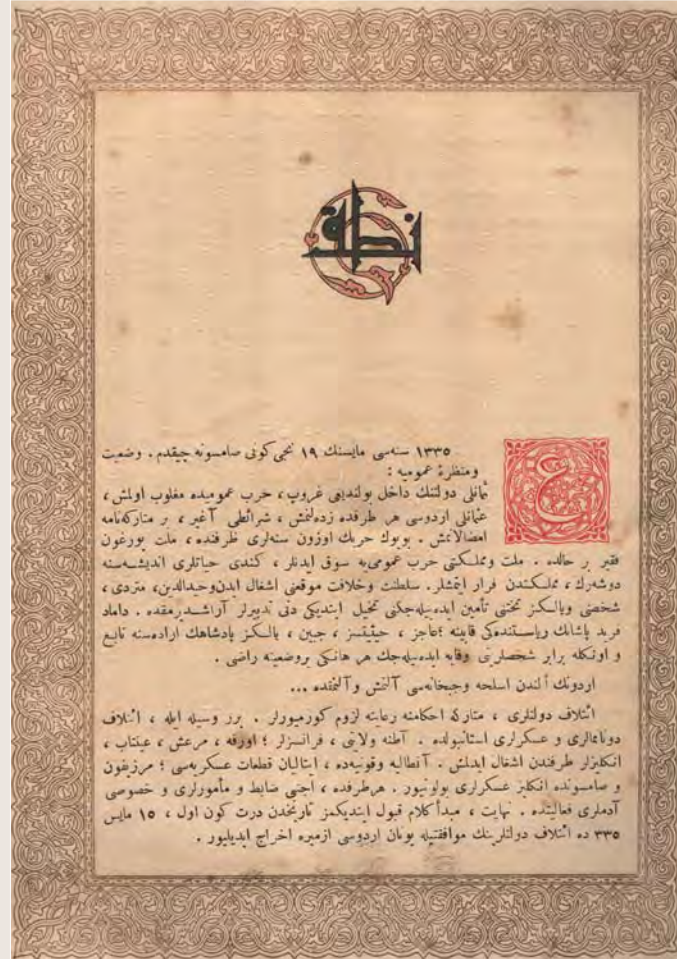 نطق
١٣٣٥ سنه‌سی مایسنك ١٩ نجی كونی صامسونه چیقدم . وضعیت
ومنظرهٔ عمومیه :
عثمانلی دولتنك داخل بولندیغی غروپ ، حرب عمومیده مغلوب اولمش ،
عثمانلی اردوسی هر طرفده زده‌لنمش ، شرائطی آغیر ، بر متاركه‌نامه
امضالانمش . بویوك حربك اوزون سنه‌لری ظرفنده ، ملت یورغون
فقیر بر حالده . ملت ومملكتی حرب عمومی‌یه سوق ایدنلر ، كندی حیاتلری اندیشه‌سنه
دوشه‌رك ، مملكتدن فرار ایتمشلر . سلطنت وخلافت موقعنی اشغال ایدن وحیدالدین ، متردی ،
شخصنی ویالكز تختنی تأمین ایده‌بیله‌جكنی تخیل ایتدیكی دنی تدبیرلر آراشدیرمقده . داماد
فرید پاشانك ریاستنده‌كی قابینه ؛ عاجز ، حیثیتسز ، جبین ، یالكز پادشاهك اراده‌سنه تابع
و اونكله برابر شخصلرینی وقایه ایده‌بیله‌جك هر هانكی بروضعیته راضی .
اردونك ألندن اسلحه وجبخانه‌سی آلنمش وآلنمقده ...
ائتلاف دولتلری ، متاركه احكامنه رعایته لزوم كورمیورلر . برر وسیله ایله ، ائتلاف
دونانمالری و عسكرلری استانبولده . آطنه ولایتی ، فرانسزلر ؛ اورفه ، مرعش ، عینتاب ،
انكلیزلر طرفندن اشغال ایدلمش . آنطالیه وقونیه‌ده ، ایتالیان قطعات عسكریه‌سی ؛ مرزیفون
و صامسونده انكلیز عسكرلری بولونیور . هرطرفده ، اجنبی ضابط و مأمورلری و خصوصی
آدملری فعالیتده . نهایت ، مبدأ كلام قبول ایتدیكمز تاریخدن درت كون اول ، ١٥ مایس
٣٣٥ ده ائتلاف دولتلرینك موافقتیله یونان اردوسی ازمیره اخراج ایدیلیور .